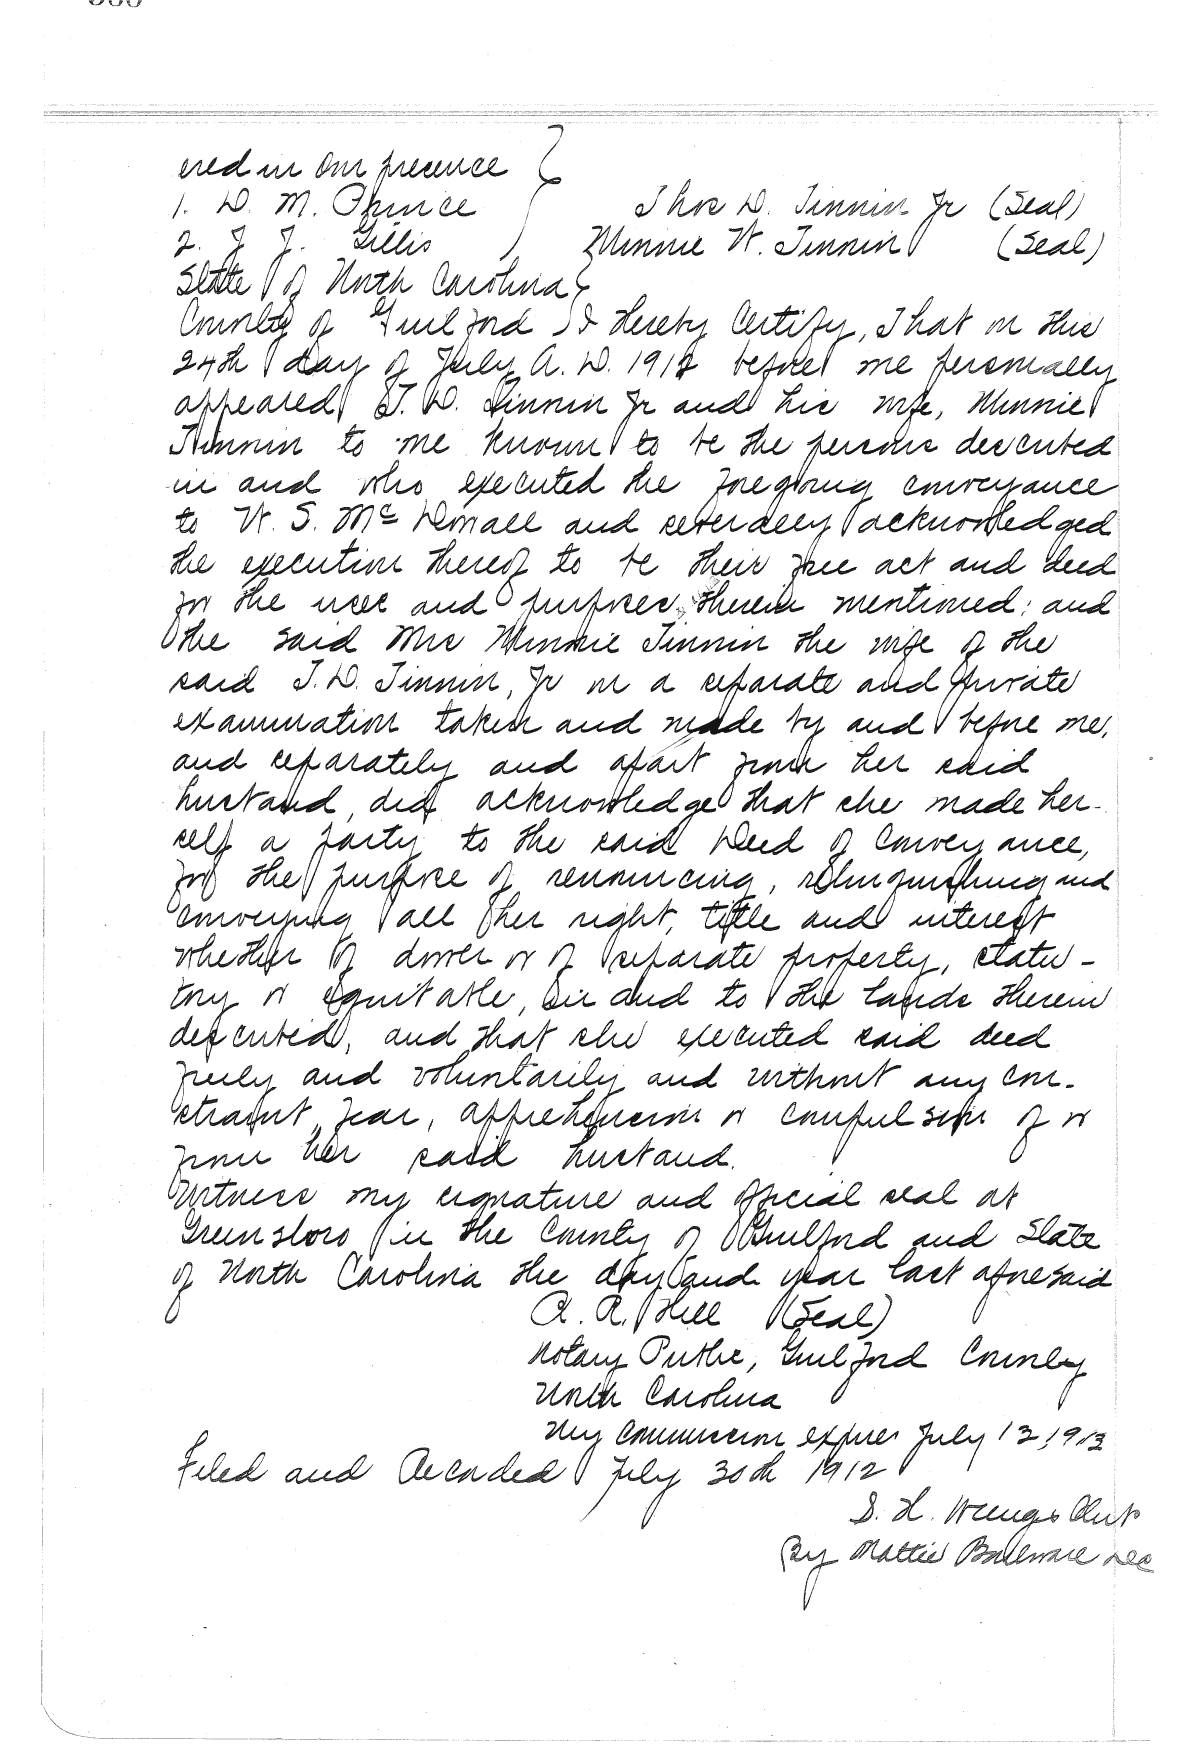 ered in Our presence }
1. D. M. Prince } Thos D. Tinnin Jr (Seal)
2. J J. Gillis ) Minnie W. Tinnin (Seal)
State of North Carolina }
County of Guilford ) I hereby Certify, That on this
24th day of July A. D. 1912 before me personally
appeared T. D. Tinnin Jr and his wife, Minnie
Tinnin to me known to be the persons described
in and who executed the foregoing conveyance
to W. S. Mc Dowall and severally acknowledged
the execution thereof to be their free act and deed
for the uses and purposes therein mentioned; and
the said Mrs Minnie Tinnin the wife of the
said T. D. Tinnin, Jr on a separate and private
examination taken and made by and before me,
and separately and apart from her said
husband, did acknowledge that she made her-
self a party to the said Deed of Conveyance,
for the purpose of renouncing, relinquishing and
conveying all her right, title and interest
whether of dower or of separate property, statu-
tory or equitable, in and to the lands therein
described, and that she executed said deed
freely and voluntarily and without any con-
straint, fear, apprehension or compulsion of or
from her said husband.
Witness my signature and official seal at
Greensboro in the County of Guilford and State
of North Carolina the day and year last aforesaid
R. R. Hill (Seal)
Notary Public, Guilford County
North Carolina
My Commission expires July 12, 1913
Filed and Recorded July 30th 1912
S. H. Clerk
By Mattie